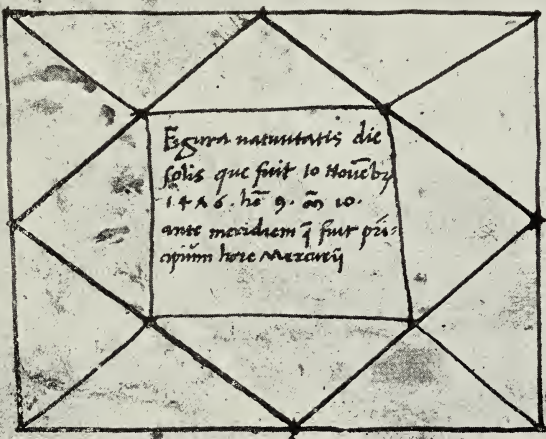 Figura natiuitatis die
solis que fuit 10 Nouēbr
1476. 9. 10.
ante meridiem q̄ fuit prī=
cipium hore Mercurij